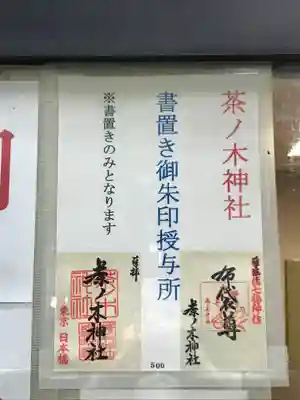 茶ノ木神社
書置き御朱印授与所
※書置きのみとなります
布袋尊
茶ノ木神社
茶ノ木神社
東京 日本橋
500